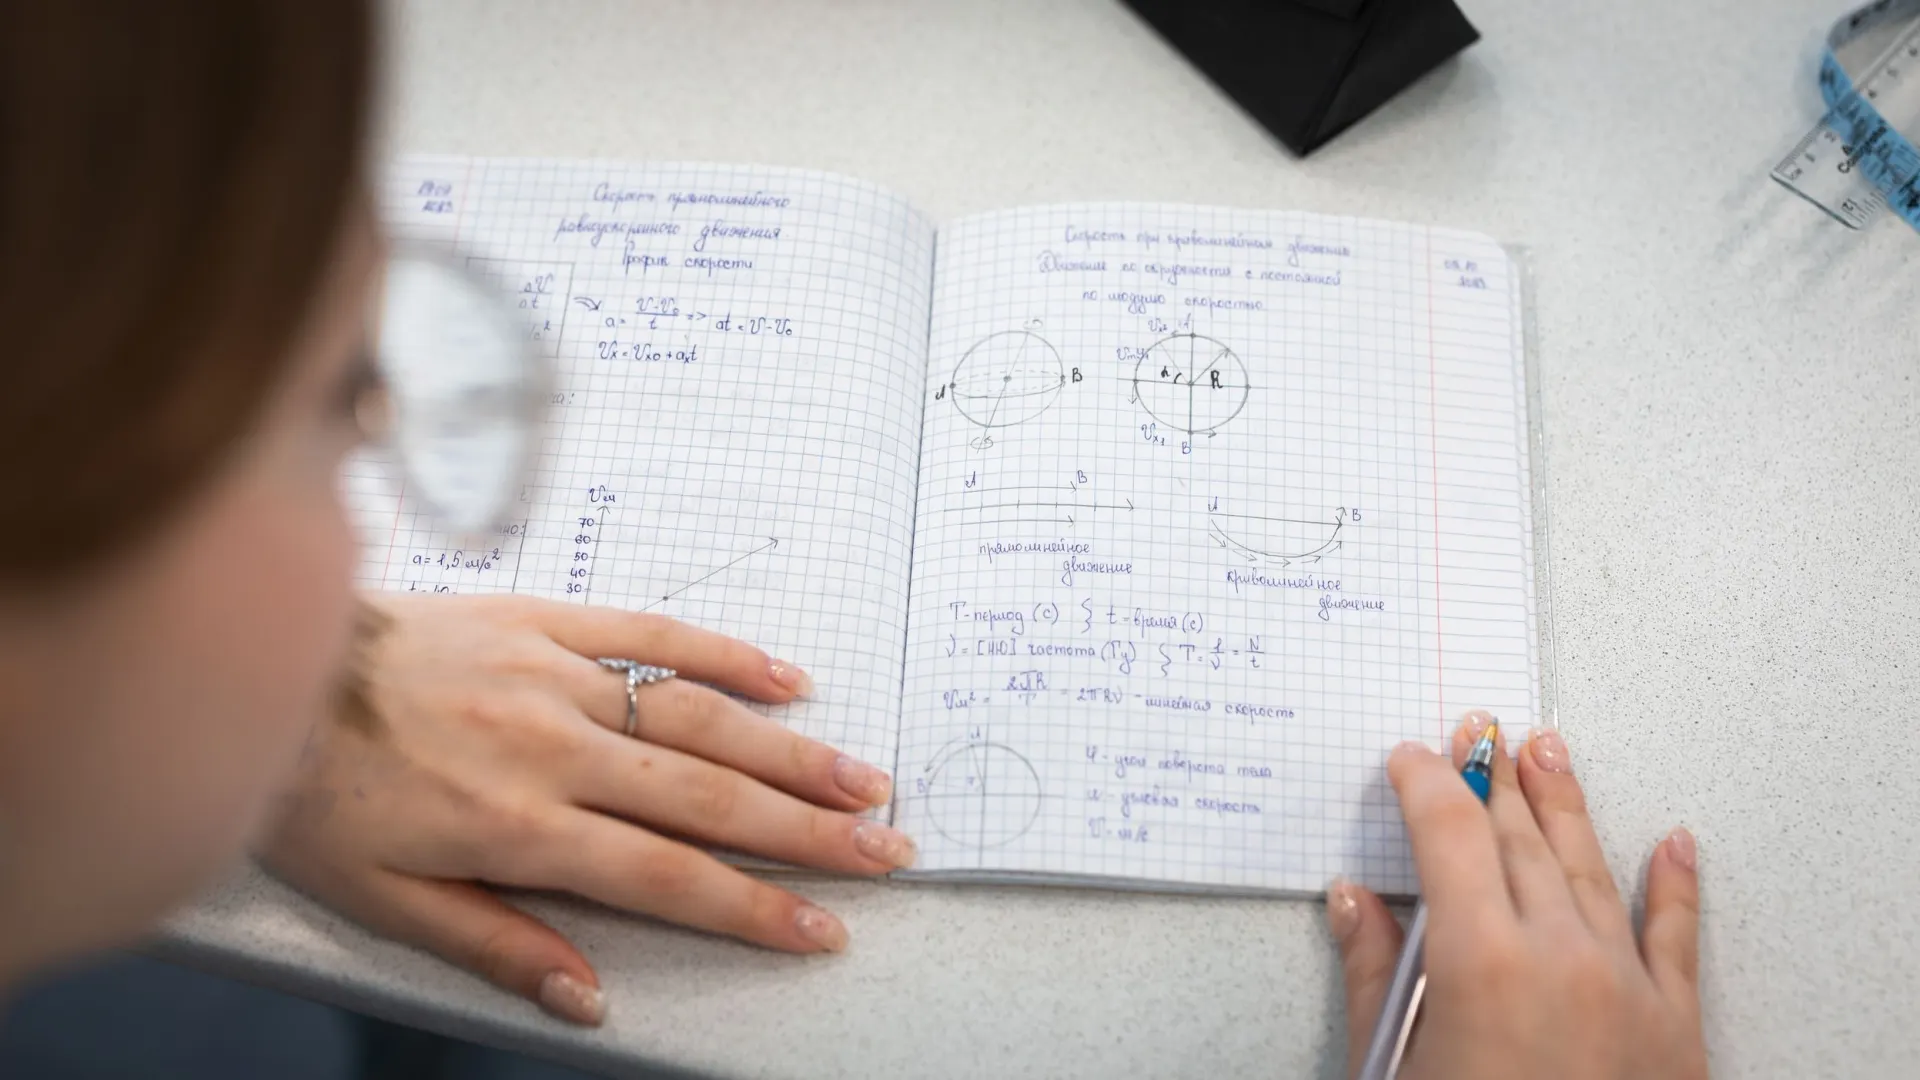 Скорость прямолинейного
равноускоренного движения.
График скорости
ΔV
Δt
a = V-V₀ / t => at = V-V₀
Vx = Vx₀ + aₓt
a = 1,5 м/с²
70
60
50
40
30
Скорость при криволинейном движении
Движение по окружности с постоянной
по модулю скоростью.
09.10
A B
R
Vx₁
B
A B
A B
прямолинейное
движение
криволинейное
движение
T - период (с) } t = время (с)
ν = [НЮ] частота (Гц) } T = 1/ν = N/t
2πR / T = 2πRν - линейная скорость
A
B
φ - угол поворота тела
угловая скорость
V - м/с